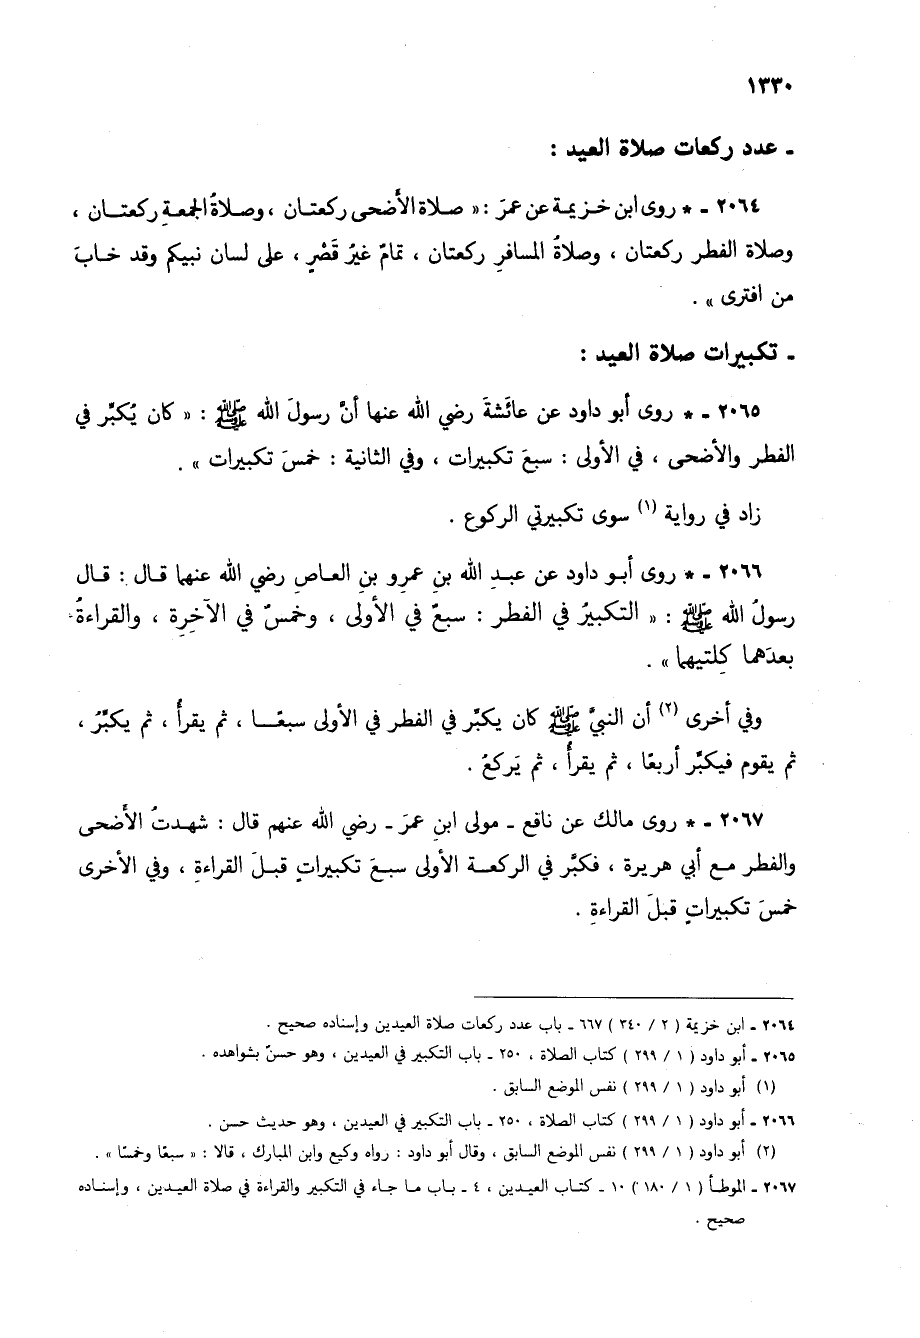 ١٣٣٠
ـ عدد ركعات صلاة العيد :
٢٠٦٤ ـ * روى ابن خزيمة عن عمرَ : « صلاة الأضحى ركعتان ، وصلاةُ الجمعةِ ركعتان ،
وصلاة الفطر ركعتان ، وصلاةُ المسافرِ ركعتان ، تمامٌ غيرُ قَصْرٍ ، على لسان نبيكم وقد خابَ
من افترى » .
ـ تكبيرات صلاة العيد :
٢٠٦٥ ـ * روى أبو داود عن عائشةَ رضي الله عنها أنَّ رسولَ الله ﷺ : « كان يُكبِّر في
الفطر والأضحى ، في الأولى : سبعَ تكبيرات ، وفي الثانية : خمسَ تكبيرات » .
زاد في رواية (١) سوى تكبيرتي الركوع .
٢٠٦٦ ـ * روى أبو داود عن عبدِ الله بنِ عمرِو بنِ العاصِ رضي الله عنهما قال : قال
رسولُ الله ﷺ : « التكبيرُ في الفطر : سبعٌ في الأولى ، وخمسٌ في الآخِرِة ، والقراءةُ
بعدَهما كِلتيهما » .
وفي أخرى (٢) أن النبيَّ ﷺ كان يكبِّر في الفطر في الأولى سبعًا ، ثم يقرأُ ، ثم يكبِّرُ ،
ثم يقوم فيكبِّر أربعًا ، ثم يقرأُ ، ثم يَركعُ .
٢٠٦٧ ـ * روى مالك عن نافع ـ مولى ابنِ عمرَ ـ رضي الله عنهم قال : شهدتُ الأضحى
والفطر مع أبي هريرة ، فكبَّر في الركعة الأولى سبعَ تكبيراتٍ قبلَ القراءةِ ، وفي الأخرى
خمسَ تكبيراتٍ قبلَ القراءةِ .
٢٠٦٤ ـ ابن خزيمة ( ٢ / ٣٤٠ ) ٦٦٧ ـ باب عدد ركعات صلاة العيدين وإسناده صحيح .
٢٠٦٥ ـ أبو داود ( ١ / ٢٩٩ ) كتاب الصلاة ، ٢٥٠ ـ باب التكبير في العيدين ، وهو حسنٌ بشواهده .
(١) أبو داود ( ١ / ٢٩٩ ) نفس الموضع السابق .
٢٠٦٦ ـ أبو داود ( ١ / ٢٩٩ ) كتاب الصلاة ، ٢٥٠ ـ باب التكبير في العيدين ، وهو حديث حسن .
(٢) أبو داود ( ١ / ٢٩٩ ) نفس الموضع السابق ، وقال أبو داود : رواه وكيع وابن المبارك ، قالا : « سبعًا وخمسًا » .
٢٠٦٧ ـ الموطأ ( ١ / ١٨٠ ) ١٠ ـ كتاب العيدين ، ٤ ـ باب ما جاء في التكبير والقراءة في صلاة العيدين ، وإسناده
صحيح .